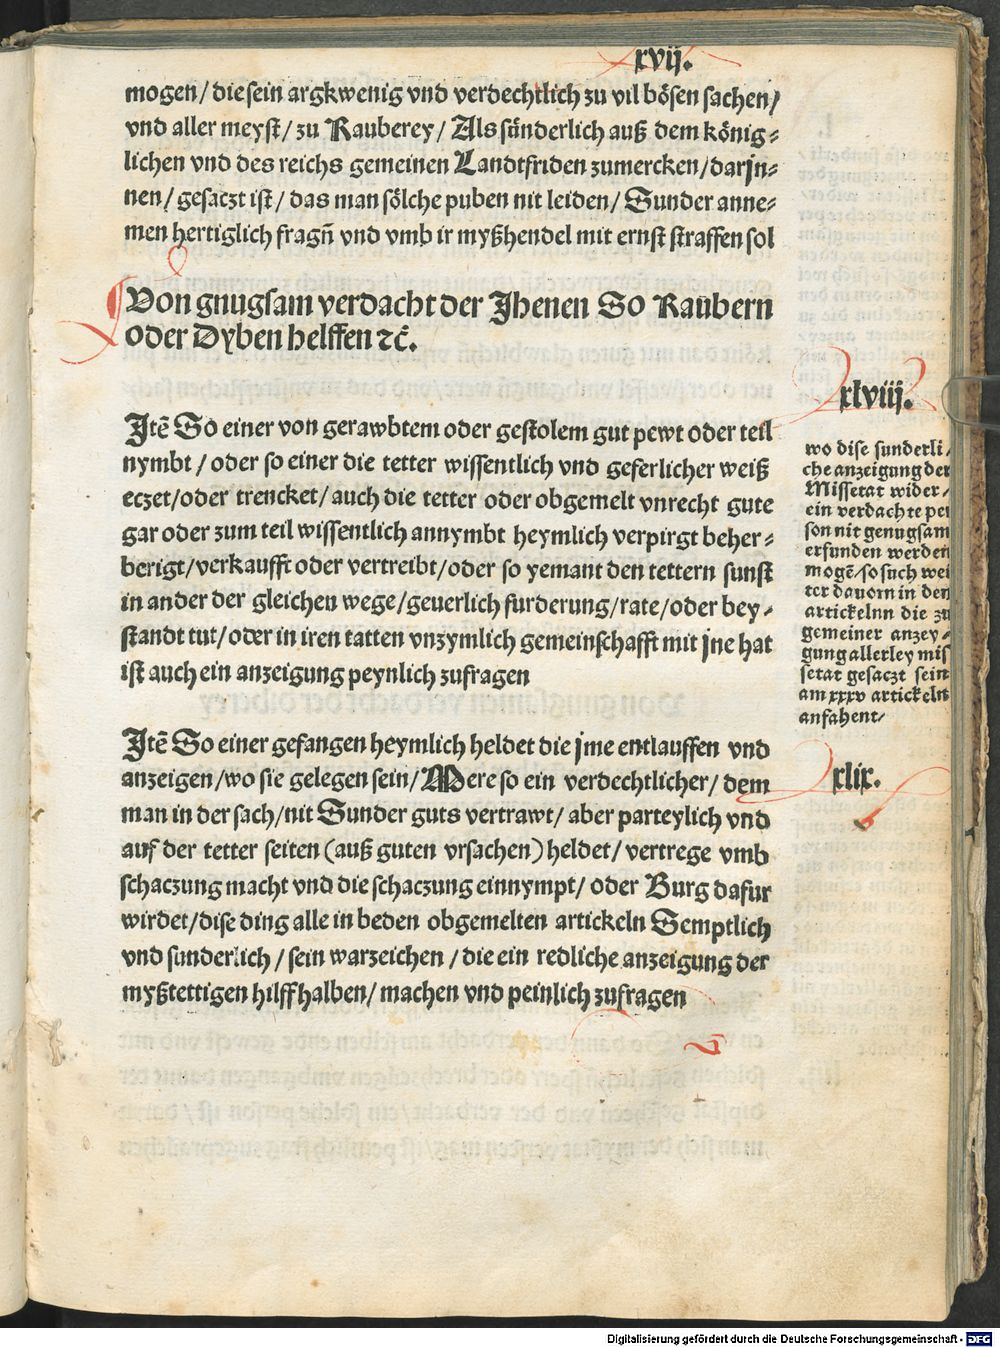 xvij.
mogen/ die sein argkwenig vnd verdechtlich zu vil bösen sachen/
vnd aller meyst/ zu Rauberey/ Als sünderlich auß dem könig⸗
lichen vnd des reichs gemeinen Landtfriden zumercken/ darjn⸗
nen/ gesaczt ist/ das man sölche puben nit leiden/ Sunder anne⸗
men hertiglich fragn̄ vnd vmb ir myßhendel mit ernst straffen sol
Von gnugsam verdacht der Jhenen So Raübern
oder Dyben helffen ꝛc̄.
xlviij.
Jtē So einer von gerawbtem oder gestolem gut pewt oder teil
nymbt/ oder so einer die tetter wissentlich vnd geferlicher weiß
eczet/oder trencket/ auch die tetter oder obgemelt vnrecht gute
gar oder zum teil wissentlich annymbt heymlich verpirgt beher⸗
berigt/verkaufft oder vertreibt/oder so yemant den tettern sunst
in ander der gleichen wege/geuerlich furderung/rate/oder bey⸗
standt tut/ oder in iren tatten vnzymlich gemeinschafft mit jne hat
ist auch ein anzeigung peynlich zufragen
wo dise sunderli/
che anzeigung der
Missetat wider/
ein verdachte per
son nit genugsam
erfunden werden
mogē/so such wei
ter dauorn in den
artickelnn die zu
gemeiner anzey⸗
gung allerley mis
setat gesaczt sein
am xxxv artickeln
anfahent/
xlix.
Jtē So einer gefangen heymlich heldet die jme entlauffen vnd
anzeigen/wo sie gelegen sein/ Were so ein verdechtlicher/ dem
man in der sach/nit Sunder guts vertrawt/ aber parteylich vnd
auf der tetter seiten (auß guten vrsachen) heldet/ vertrege vmb
schaczung macht vnd die schaczung einnympt/ oder Burg dafur
wirdet/dise ding alle in beden obgemelten artickeln Semptlich
vnd sunderlich/ sein warzeichen/ die ein redliche anzeigung der
myßtettigen hilff halben/ machen vnd peinlich zufragen
Digitalisierung gefördert durch die Deutsche Forschungsgemeinschaft - DFG